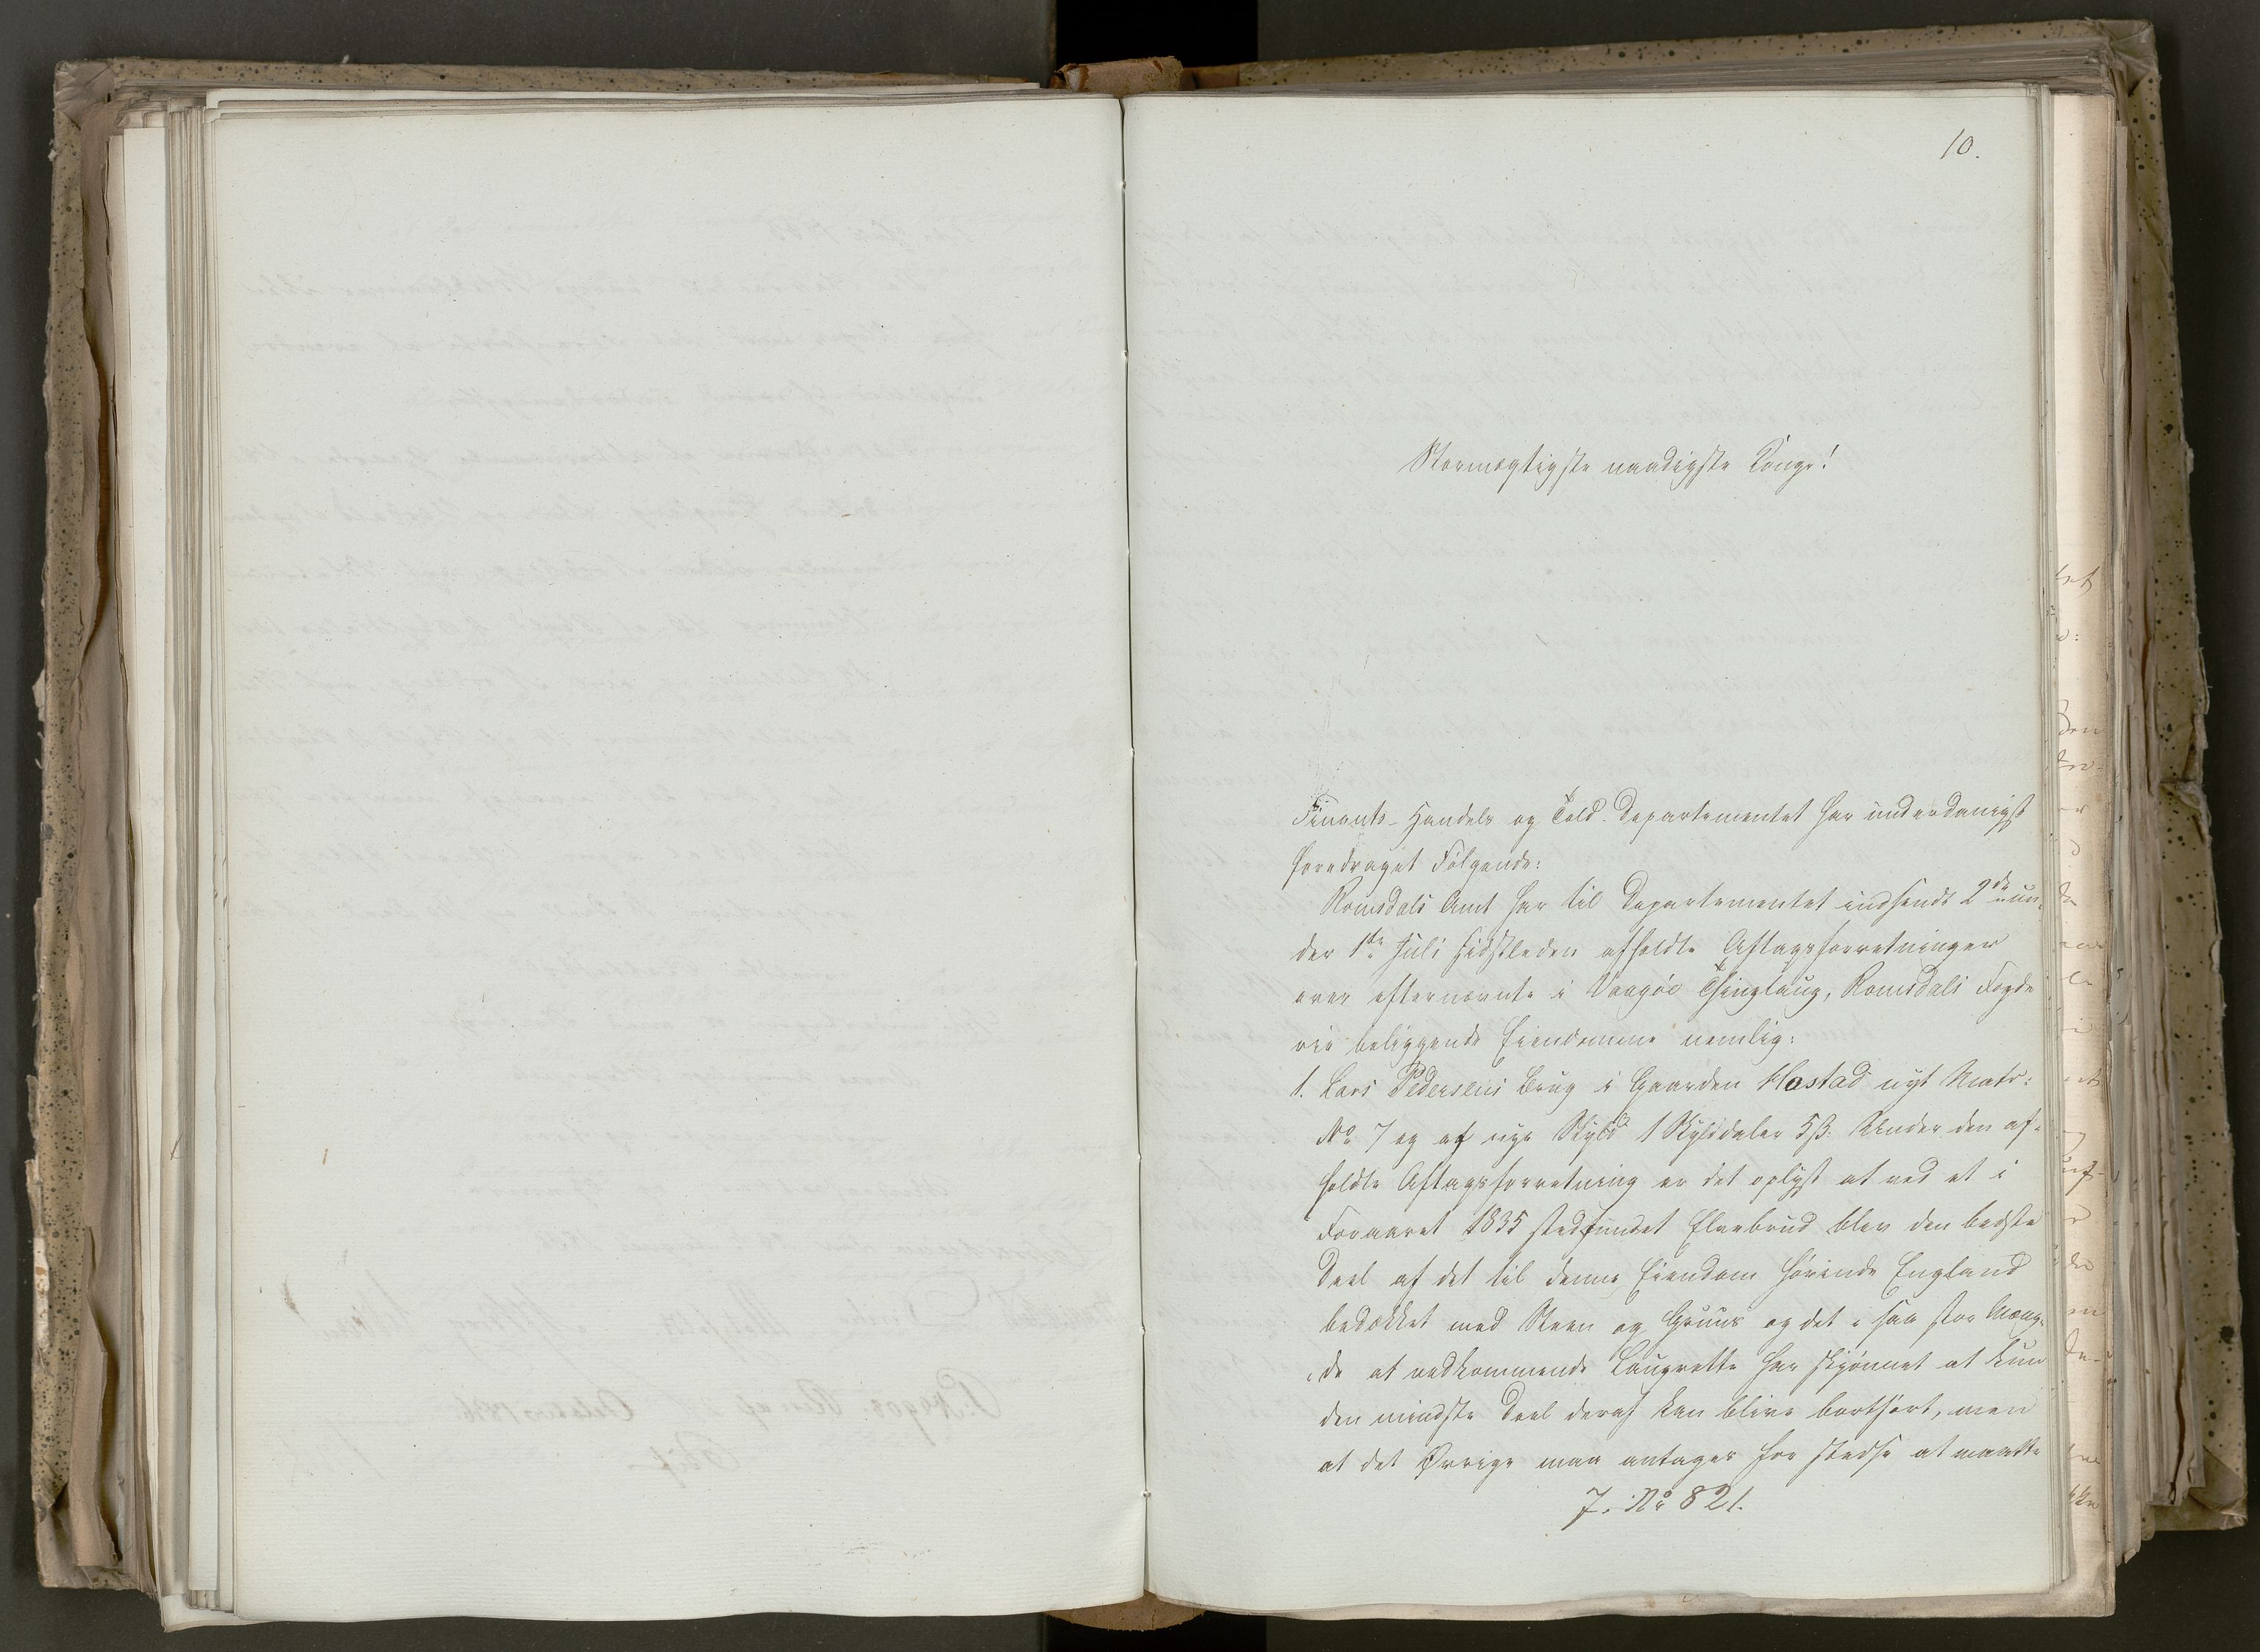 10.
Stormægtigste naadigste Konge!
Finants- Handels og Told-Departementet har underdanigst
foredraget Følgende:
Romsdals Amt har til Departementet indsendt 2de un-
der 1ste Juli sidstleden afholdte Aftagsforretninger
over efternævnte i Vaagøe Thinglaug, Romsdals Fogde
rie beliggende Eiendomme nemlig:
1. Lars Pedersens Brug i Gaarden Hostad nyt Matr:
No 7 og af nye Skyld 1 Skylddaler 5 ß. Under den af-
holdte Aftagsforretning er det oplyst at ved et i
Foraaret 1835 stedfundet Elvebrud blev den bedste
Deel af det til denne Eiendom hørende England
bedækket med Steen og Gruus og det i saa stor Mæng-
de at vedkommende Laugrette har skjønnet at kun
den mindste Deel deraf kan blive bortført, men
at det Øvrige maa antages for stedse at maatte
J. No 821.